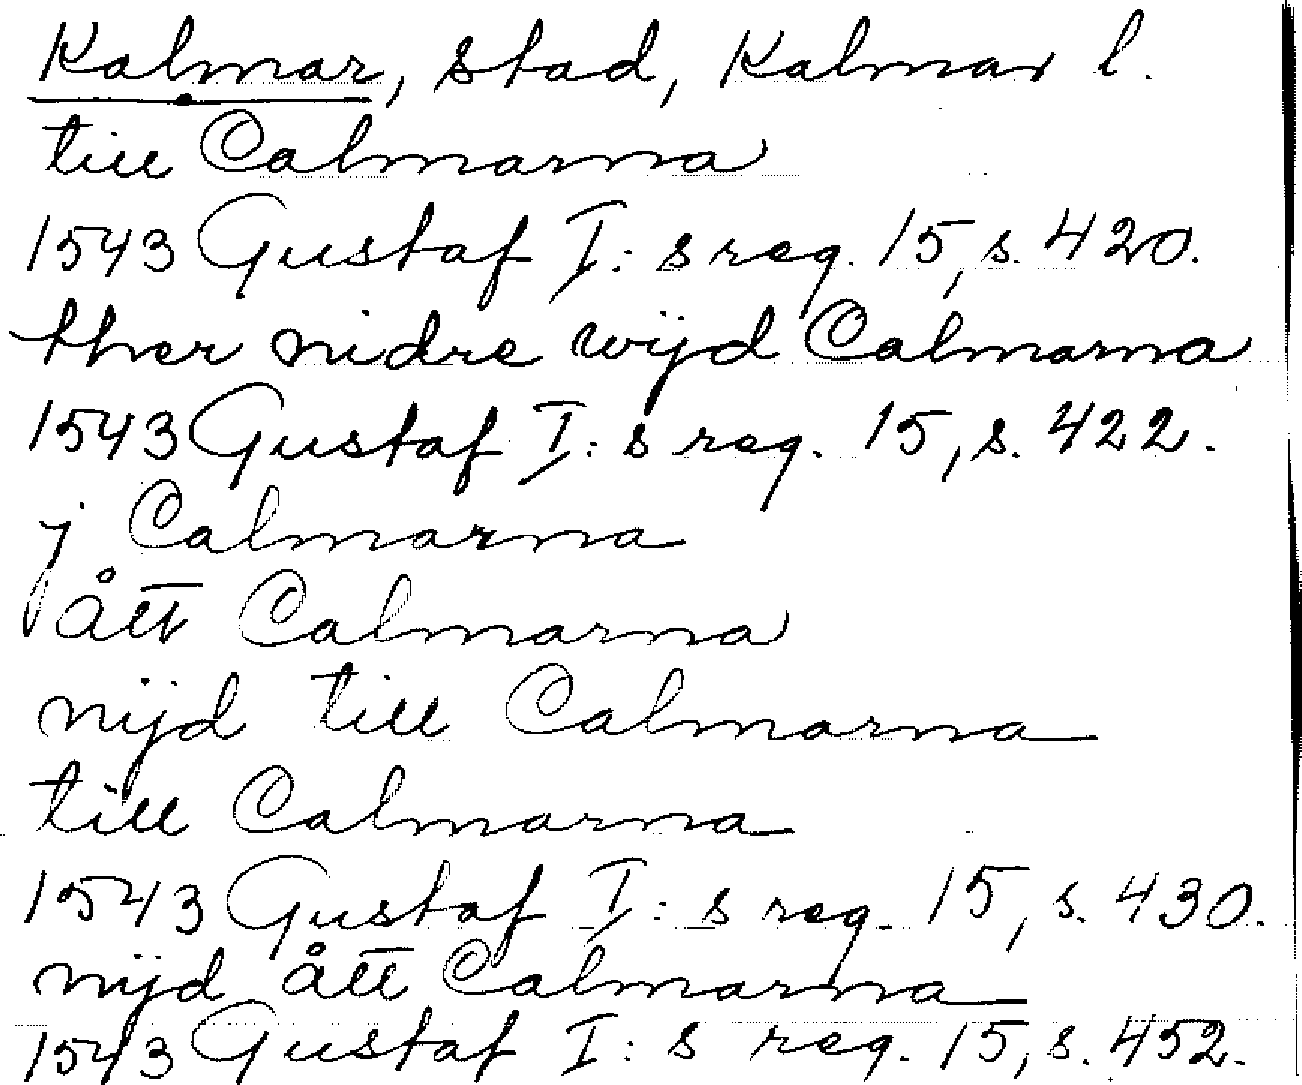 Kalmar, stad, Kalmar l.
till Calmarna
1543 Gustaf I:s reg. 15, s. 420.
ther nidre wijd Calmarna
1543 Gustaf I:s reg. 15, s. 422.
j Calmarna
ått Calmarna
nijd till Calmarna
till Calmarna
1543 Gustaf I:s reg. 15, s. 430.
nijd ått Calmarna
1543 Gustaf I:s reg. 15, s. 452.